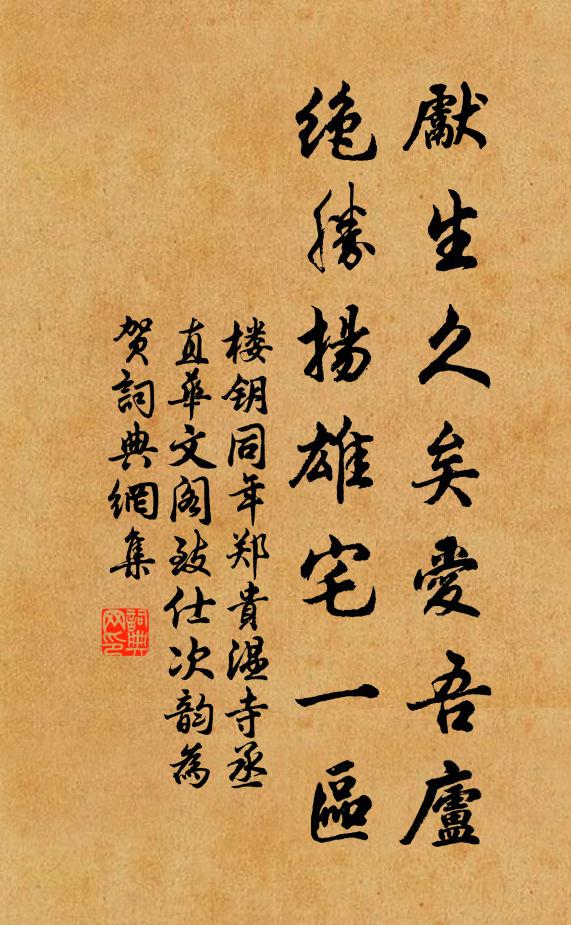 獻生久矣愛吾廬
絶勝揚雄宅一區
楼钥同年郑貴温寺丞
直華文阁致仕次韵為
贺詞典網集
詞典网印